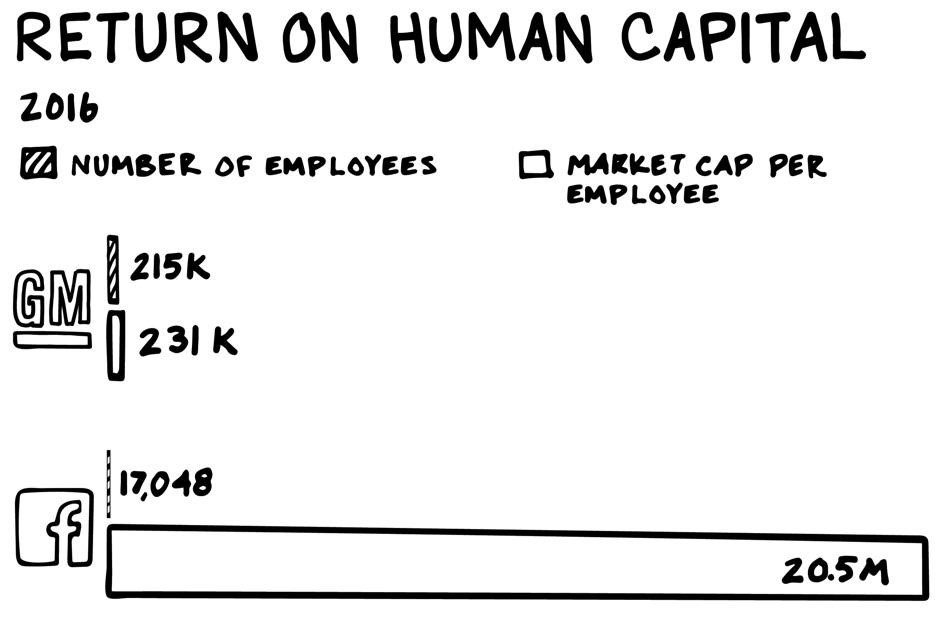 RETURN ON HUMAN CAPITAL
2016
NUMBER OF EMPLOYEES
MARKET CAP PER
EMPLOYEE
GM
215K
231K
f
17,048
20.5M